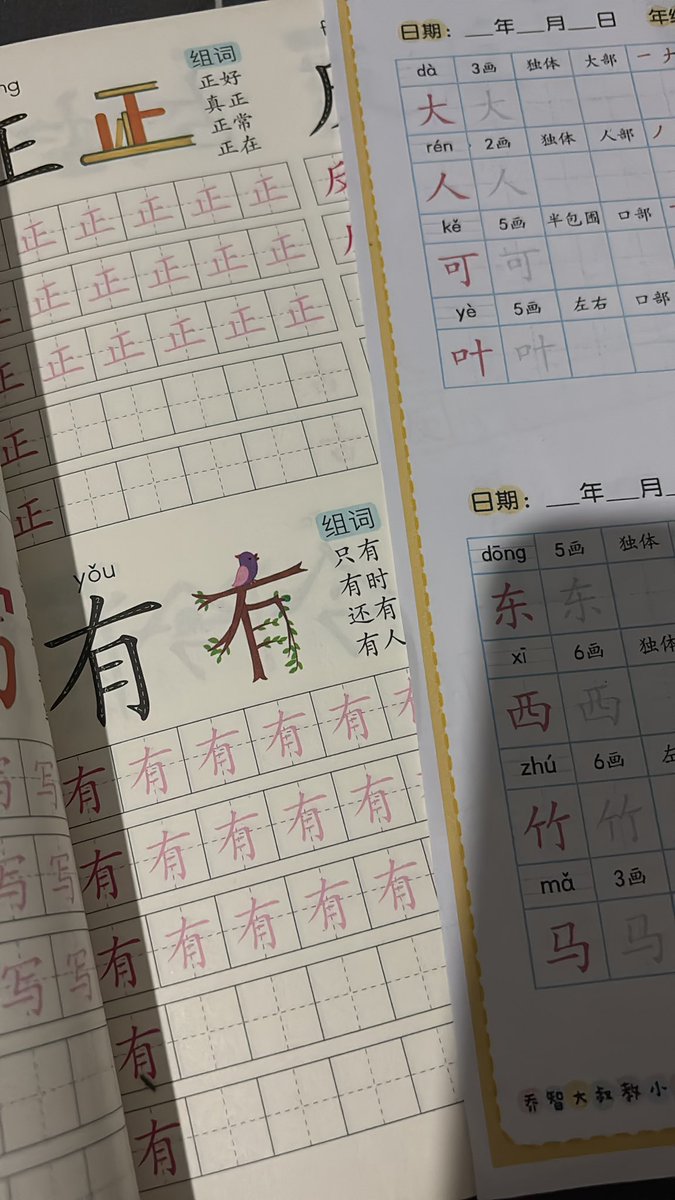 正 正
组词
正好
真正
正常
正在
正 正 正 正 正
正 正 正 正 正
正 正 正 正 正
正
正
yǒu
有 有
组词
只有
有时
还有
有人
有 有 有 有 有 有
有 有 有 有 有
有 有 有 有 有
有
有
写 写
写 写
写 写
反
日期：__年__月__日
dà 3画 独体 大部
大 大
rén 2画 独体 人部
人 人
kě 5画 半包围 口部
可 可
yè 5画 左右 口部
叶 叶
日期：__年__月
dōng 5画 独体
东 东
xī 6画 独体
西 西
zhú 6画 左
竹 竹
mǎ 3画
马 马
乔智大叔教小